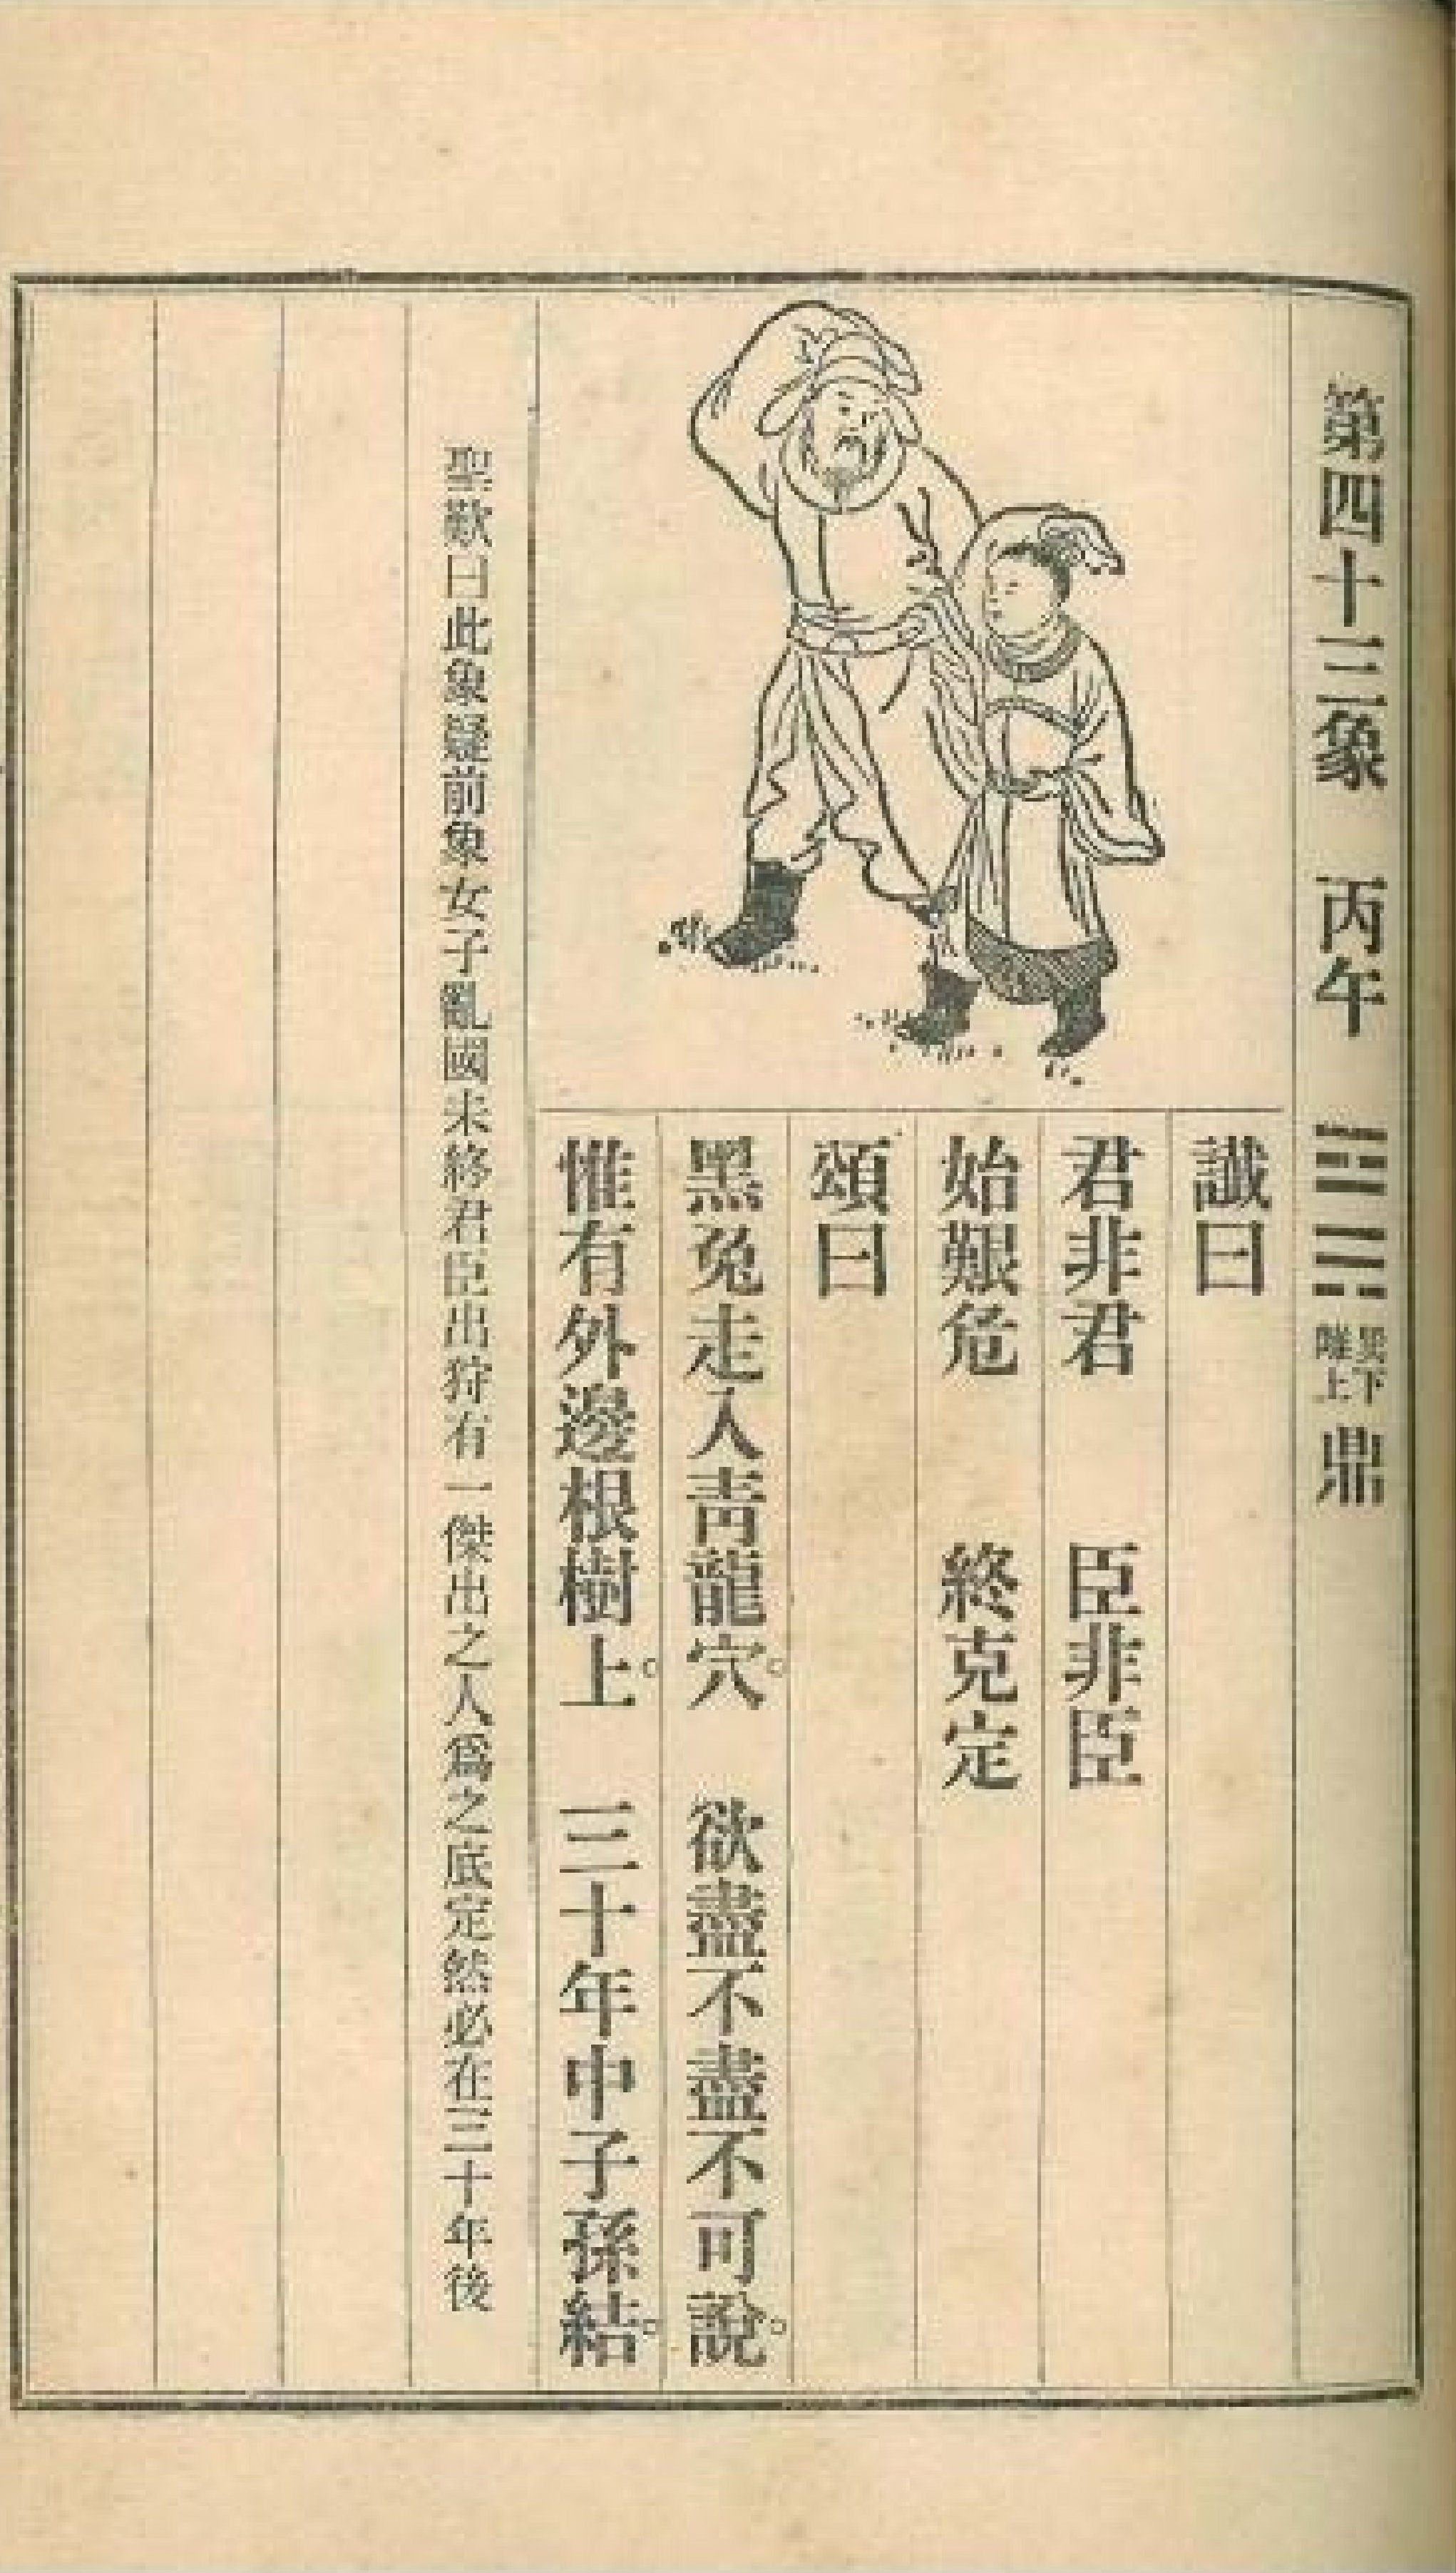 第四十三象 丙午 ䷱ 巽下離上 鼎
讖曰
君非君 臣非臣
始艱危 終克定
頌曰
黑兔走入靑龍穴。 欲盡不盡不可說。
惟有外邊根樹上。 三十年中子孫結。
聖歎曰此象疑前象女子亂國未終君臣出狩有一傑出之人爲之底定然必在三十年後